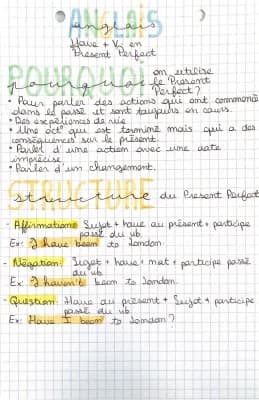 ANGLAIS
anglais
Have + V3 en
Present Perfect
POURQUOI
pourquoi on utilise
le Present
Perfect?
• Pour parler des actions qui ont commencé
dans le passé et sont toujours en cours.
• Des expériences de vie
• Une act° qui est terminé mais qui a des
conséquences sur le présent.
• Parler d'une action avec une date
imprécise.
• Parler d'un changement.
STRUCTURE
structure du Present Perfect
- Affirmation: Sujet + have au présent + participe
passé du vb.
Ex: I have been to London.
- Négation: Sujet + have + not + participe passé
du vb
Ex: I haven't been to London.
- Question: Have au présent + Sujet + participe
passé du vb.
Ex: Have I been to London?